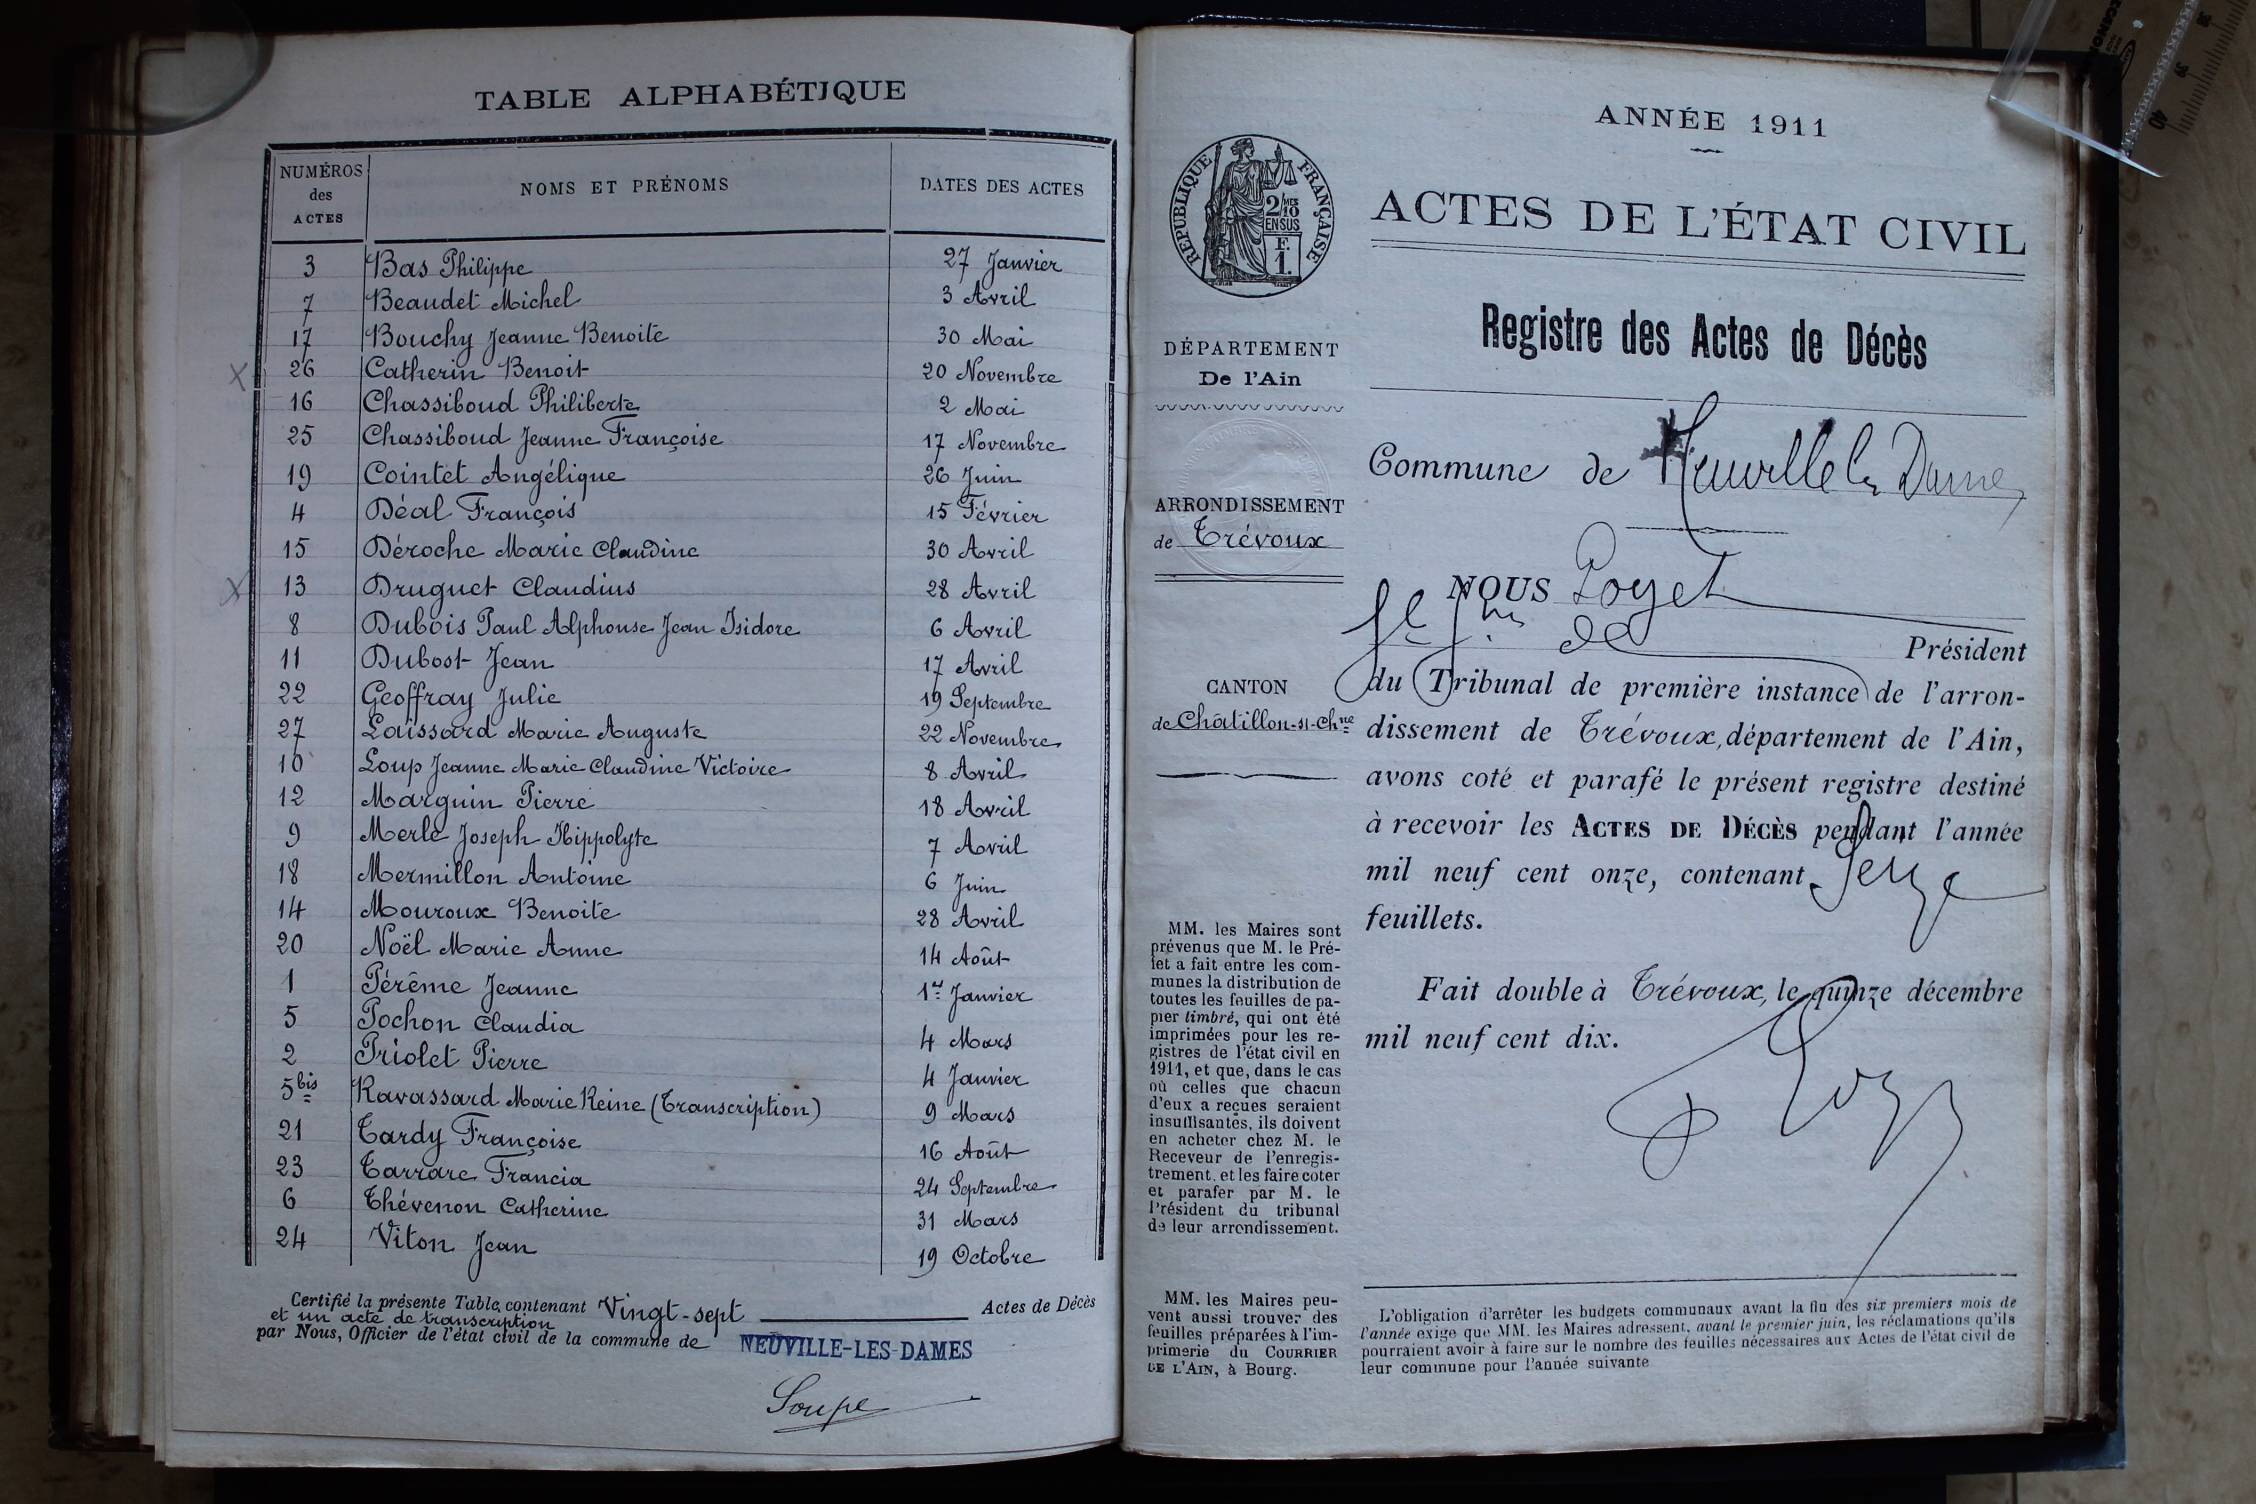 TABLE ALPHABÉTIQUE
NUMÉROS des ACTES NOMS ET PRÉNOMS DATES DES ACTES
3 Bas Philippe 27 Janvier
7 Beaudet Michel 3 Avril
17 Bouchy Jeanne Benoite 30 Mai
X 26 Catherin Benoit 20 Novembre
16 Chassiboud Philiberte 2 Mai
25 Chassiboud Jeanne Françoise 17 Novembre
19 Cointet Angélique 26 Juin
4 Déal François 15 Février
15 Déroche Marie Claudine 30 Avril
X 13 Druguet Claudius 28 Avril
8 Dubois Paul Alphonse Jean Isidore 6 Avril
11 Dubost Jean 17 Avril
22 Geoffray Julie 19 Septembre
27 Laissard Marie Auguste 22 Novembre
10 Loup Jeanne Marie Claudine Victoire 8 Avril
12 Marguin Pierre 18 Avril
9 Merle Joseph Hippolyte 7 Avril
18 Mermillon Antoine 6 Juin
14 Mouroux Benoite 28 Avril
20 Noël Marie Anne 14 Août
1 Pérême Jeanne 1er Janvier
5 Pochon Claudia 4 Mars
2 Priolet Pierre 4 Janvier
5 bis Ravassard Marie Reine (Transcription) 9 Mars
21 Tardy Françoise 16 Août
23 Tarrare Francia 24 Septembre
6 Thévenon Catherine 31 Mars
24 Viton Jean 19 Octobre
Certifié la présente Table, contenant Vingt-sept Actes de Décès
et un acte de transcription
par Nous, Officier de l'état civil de la commune de NEUVILLE-LES-DAMES
Soupe
ANNÉE 1911
RÉPUBLIQUE FRANÇAISE
2/10 MES
EN SUS
F.
1.
ACTES DE L'ÉTAT CIVIL
Registre des Actes de Décès
DÉPARTEMENT
De l'Ain
ARRONDISSEMENT
de Trévoux
CANTON
de Châtillon-s-Chne
MM. les Maires sont
prévenus que M. le Pré-
fet a fait entre les com-
munes la distribution de
toutes les feuilles de pa-
pier timbré, qui ont été
imprimées pour les re-
gistres de l'état civil en
1911, et que, dans le cas
où celles que chacun
d'eux a reçues seraient
insuffisantes, ils doivent
en acheter chez M. le
Receveur de l'enregis-
trement, et les faire coter
et parafer par M. le
Président du tribunal
de leur arrondissement.
MM. les Maires peu-
vent aussi trouver des
feuilles préparées à l'im-
primerie du COURRIER
DE L'AIN, à Bourg.
Commune de Neuville les Dames
NOUS Poyet
Président
du Tribunal de première instance de l'arron-
dissement de Trévoux, département de l'Ain,
avons coté et parafé le présent registre destiné
à recevoir les ACTES DE DÉCÈS pendant l'année
mil neuf cent onze, contenant
feuillets.
Fait double à Trévoux, le quinze décembre
mil neuf cent dix.
L'obligation d'arrêter les budgets communaux avant la fin des six premiers mois de
l'année exige que MM. les Maires adressent, avant le premier juin, les réclamations qu'ils
pourraient avoir à faire sur le nombre des feuilles nécessaires aux Actes de l'état civil de
leur commune pour l'année suivante